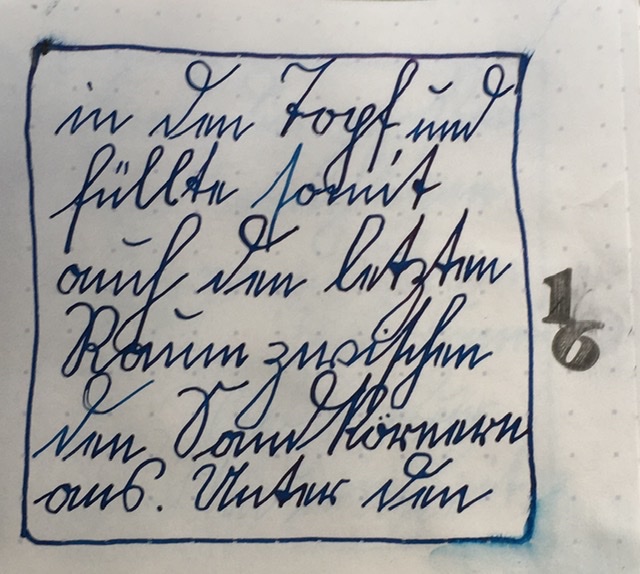 in den Topf und
füllte somit
auch den letzten
Raum zwischen
den Sandkörnern
aus. Unter den
16